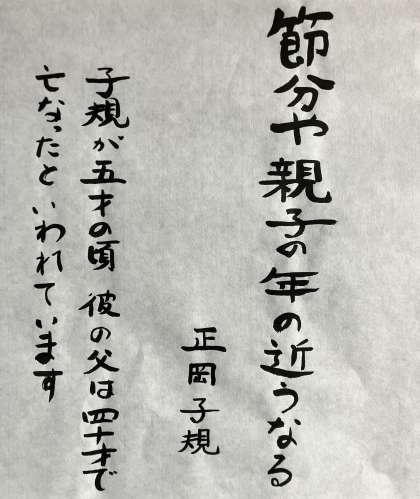 節分や親子の年の近うなる
正岡子規
子規が五才の頃 彼の父は四十才で
亡なったといわれています